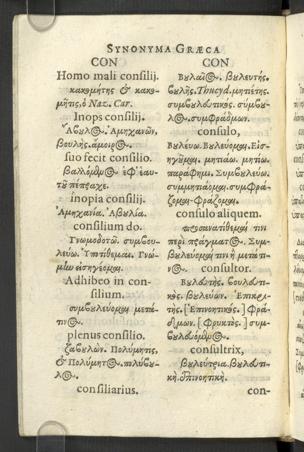 SYNONYMA GRÆCA
CON
Homo mali consilij.
κακομήτης & κακο-
μῆτις, ὁ Naz. Car.
Inops consilij.
Ἄβουλος. Ἀμηχανῶν.
βουλῆς. ἄμοιρος.
suo fecit consilio.
ἐφ' ἑαυ-
τοῦ πέπραχε.
inopia consilij.
Ἀμηχανία. Ἀβουλία.
consilium do.
Γνωμοδοτῶ. συμβου-
λεύω. Ὑποτίθεμαι. Γνώ-
μην εἰσηγέομαι.
Adhibeo in con-
silium.
συμβουλεύομαι μετά
τινος.
plenus consilio.
Πολύμητις,
& Πολύμητος. πολύβου-
λος.
consiliarius.
CON
Βουλαῖος. βουλευτής.
βουλῆς. Thucyd. μητιέτης.
συμβουλευτικός. σύμβου-
λος. συμφράδμων.
consulo,
Βουλεύω. Βουλεύομαι. Εἰσ-
ηγοῦμαι. μητιάω. μητίω.
παράφημι. Συμβουλεύω.
συμμητιάομαι. συμφρά-
ζομαι. Φράζομαι.
consulo aliquem.
τινι
περὶ πράγματος. Συμ-
βουλεύομαί τινι ἢ μετά τι-
νος.
consultor.
Βουλευτής. βουλευτι-
κός. βουλεύων.
της. [Ἐπινοητικός.] Φρά-
δμων. [Φρικτὸς.] συμ-
βουλευόμενος.
consultrix,
βουλεύτρια. βουλευτι-
κή. ἐπινοητική.
con-